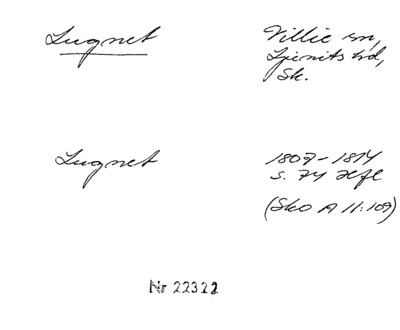 Lugnet
Villie sn,
Ljunits hd,
Sk.
Lugnet
1807-1814
s. 74 Hfl
(SkO A 11:109)
Nr 22322